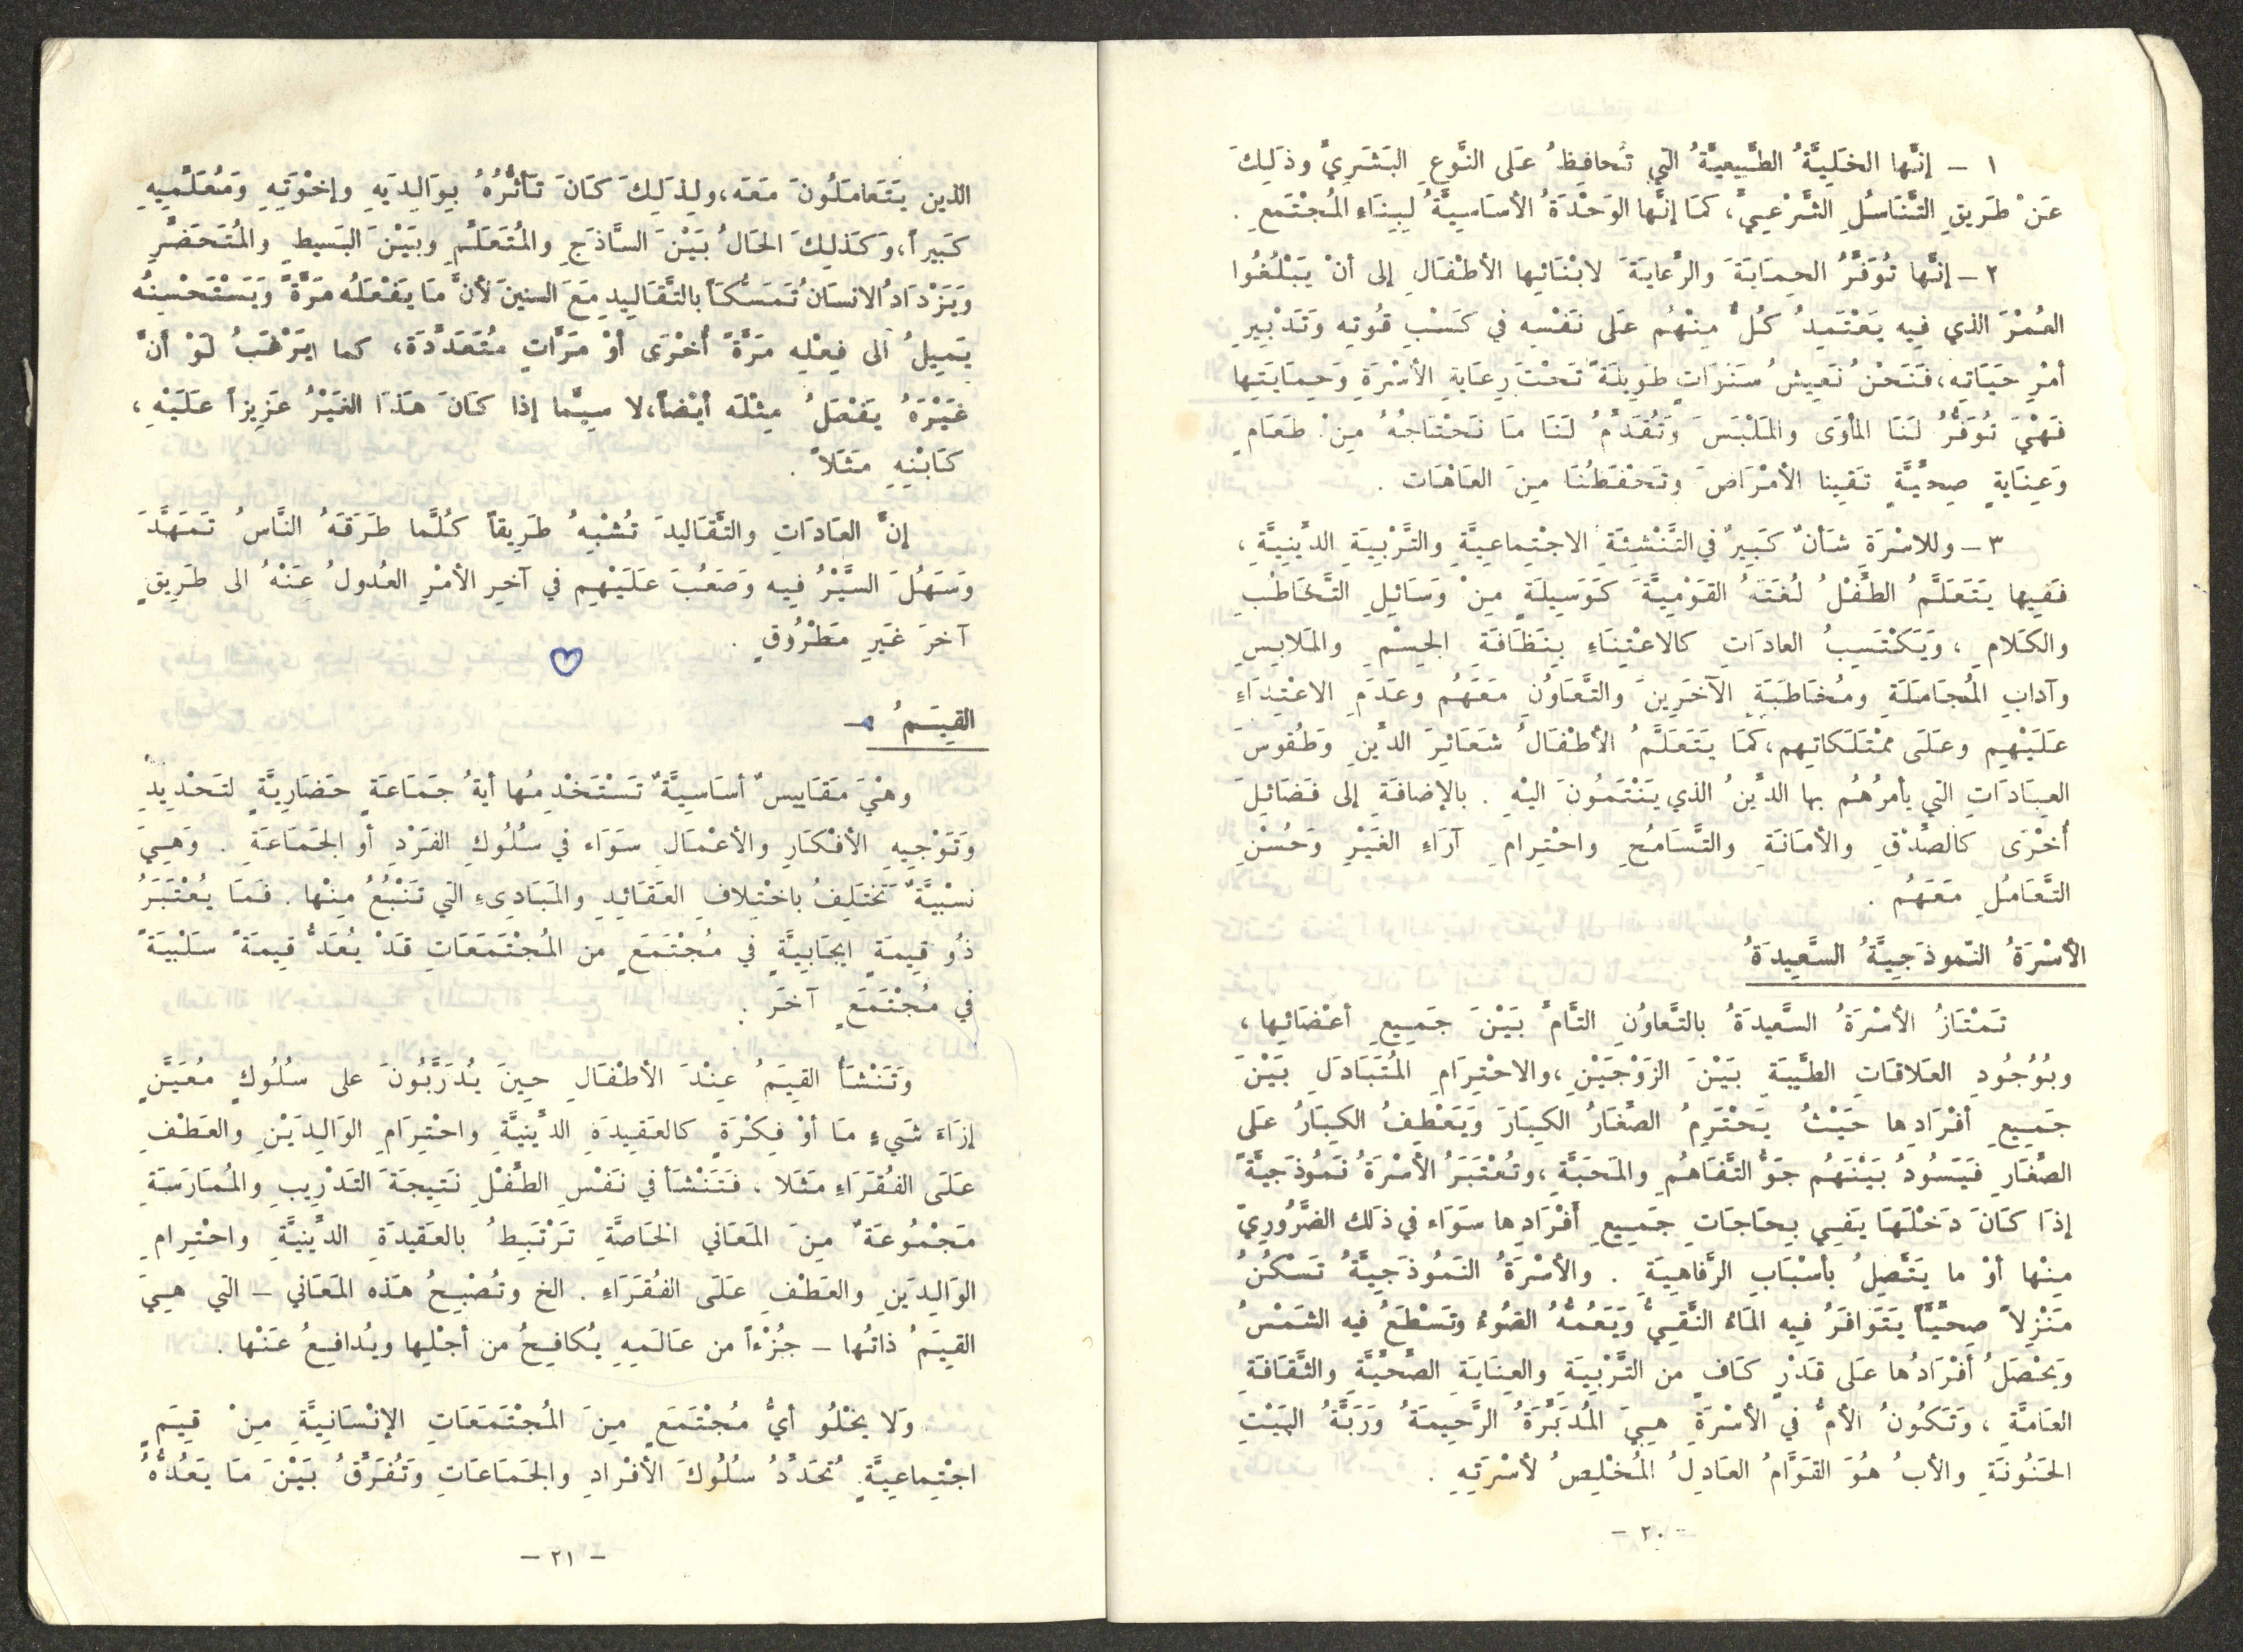 ١ – إنَّها الخَلِيَّةُ الطَّبِيعيَّةُ الَّتي تُحافِظُ عَلى النَّوعِ البَشَرِيِّ وذَلِكَ
عَنْ طَرِيقِ التَّنَاسُلِ الشَّرْعِيِّ، كَمَا إنَّها الوَحْدَةُ الأسَاسِيَّةُ لِبِنَاءِ المُجْتَمعِ .
٢ – إنَّها تُوَفِّرُ الحِمَايَةَ والرِّعايَةَ لابْنَائِها الأطْفَالِ إلى أنْ يَبْلُغُوا
العُمْرَ الذي فِيهِ يَعْتَمِدُ كُلٌّ مِنْهُم عَلى نَفْسِهِ في كَسْبِ قُوتِهِ وَتَدْبِيرِ
أمْرِ حَيَاتِهِ، فَنَحْنُ نَعِيشُ سَنَوَاتٍ طَوِيلَةً تَحْتَ رِعَايَةِ الأسْرَةِ وَحِمَايَتِها
فَهْيَ تُوَفِّرُ لَنَا المأوَى والمَلْبَسَ وَتُقَدِّمُ لَنَا مَا نَحْتَاجُهُ مِنْ طَعَامٍ
وَعِنَايَةٍ صِحِّيَّةٍ تَقِينا الأمْرَاضَ وتَحْفَظُنَا مِنَ العَاهَات .
٣ – وللاسْرَةِ شَأنٌ كَبِيرٌ في التَّنْشِئَةِ الاجْتِماعِيَّةِ والتَّرْبِيَةِ الدِّينِيَّةِ ،
فَفِيها يَتَعَلَّمُ الطِّفْلُ لُغَتَهُ القَوْمِيَّةَ كَوَسِيلَةٍ مِنْ وَسَائِلِ التَّخَاطُبِ
والكَلامِ ، وَيَكْتَسِبُ العادَاتِ كالاعْتِنَاءِ بِنَظَافَةِ الجِسْمِ والمَلابِسِ
وآدابِ المُجَامَلَةِ ومُخاطَبَةِ الآخَرِينَ والتَّعَاوُنِ مَعَهُم وعَدَمِ الاعْتِدَاءِ
عَلَيْهِم وعَلَى ممْتَلَكاتِهِم، كَمَا يَتَعَلَّمُ الأطْفَالُ شَعَائِرَ الدِّينِ وَطُقُوسَ
العِبَادَاتِ التي يأمرُهُم بها الدِّينُ الذي يَنْتَمُونَ اليْهِ . بالإضافَةِ إلى فَضَائِلَ
أُخْرَى كَالصِّدْقِ والأمَانَةِ والتَّسَامُحِ واحْتِرامِ آرَاءِ الغَيْرِ وَحُسْنِ
التَّعَامُلِ مَعَهُم .
الأسْرَةُ النّموذَجِيَّةُ السَّعِيدَةُ
تَمْتَازُ الأسْرَةُ السَّعِيدَةُ بالتَّعاوُنِ التَّامِّ بَيْنَ جَمِيعِ أعْضَائِها ،
وبُوُجُودِ العَلاقَاتِ الطَّيِّبَةِ بَيْنَ الزَوْجَيْنِ ،والاحْتِرَامِ المُتَبَادَلِ بَيْنَ
جَمِيعِ أفْرَادِها حَيْثُ يَحْتَرِمُ الصِّغَارُ الكِبَارَ وَيَعْطِفُ الكِبَارُ عَلَى
الصِّغَارِ فَيَسُودُ بَيْنَهُم جَوُّ التَّفَاهُمِ والمَحَبَّةِ ،وتُعْتَبَرُ الأسْرَةُ نَمُوذَجِيَّةً
إذَا كَانَ دَخْلَهَا يَفِي بِحَاجَاتِ جَمِيعِ أفْرَادِها سَوَاء في ذَلك الضَّرُورِيّ
مِنْها أوْ ما يَتَّصِلُ بأسْبَابِ الرَّفَاهِيَةِ . والأسْرَةُ النَمُوذَجِيَّةُ تَسْكُنُ
مَنْزِلاً صِحِّيَّاً يَتَوَافَرُ فِيهِ المَاءُ النَّقِيُّ وَيَعُمُّهُ الضُوءُ وتَسْطَعُ فيه الشَمْسُ
وَيَحْصَلُ أفْرَادُها عَلى قَدْرٍ كَافٍ من التَّرْبِيَةِ والعِنَايَةِ الصِّحِّيَّةِ والثَّقَافَةِ
العَامَّةِ ، وَتَكُونُ الأمُّ في الأسْرَةِ هِيَ المُدَبِّرَةُ الرَّحِيمَةُ وَرَبَّةُ البَيْتِ
الحَنُونَةِ والأبُ هُوَ القَوَّامُ العَادِلُ المُخْلِصُ لأسْرَتِهِ .
– ٢٠ –
الذين يَتَعامَلُونَ مَعَه، ولِذَلِكَ كَانَ تَأثُّرُهُ بِوَالِدَيهِ وإخْوَتِهِ وَمُعَلِّمِيهِ
كَبيراً، وَكَذلِكَ الحَالُ بَيْنَ السَّاذَجِ والمُتَعَلِّمِ وبَيْنَ البَسيطِ والمُتَحَضِّرِ
وَيَزْدَادُ الانسَانُ تَمَسُّكَاً بالتَّقَالِيدِ مَعَ السنينَ لأنَّ مَا يَفْعَلُه مَرَّةً وَيَسْتَحْسِنُهُ
يَمِيلُ الى فِعْلِهِ مَرَّةً أخْرَى أوْ مَرَّاتٍ مُتَعَدِّدَة، كما يَرْغَبُ لَوْ أنَّ
غَيْرَهُ يَفْعَلُ مِثْلَه أيْضاً، لا سِيَّما إذا كَانَ هَذَا الغَيْرُ عَزِيزاً عَلَيْهِ ،
كَابْنِهِ مَثَلاً .
إنَّ العَادَاتِ والتَّقَاليدَ تُشْبِهُ طَرِيقاً كُلَّما طَرَقَهُ النَّاسُ تَمَهَّدَ
وَسَهُلَ السَّيْرُ فِيهِ وَصَعُبَ عَلَيْهِم في آخِرِ الأمْرِ العُدُولُ عَنْهُ الى طَرِيقٍ
آخرَ غَيرِ مَطْرُوقٍ .
القِيَمُ –
وهْيَ مَقَاييسٌ أسَاسِيَّةٌ تَسْتَخْدِمُها أيةُ جَمَاعَةٍ حَضَارِيَّةٍ لتَحْدِيدِ
وَتَوْجِيهِ الأفْكَارِ والأعْمَالِ سَوَاء في سُلُوكِ الفَرْدِ أو الجَمَاعَةِ . وَهِيَ
نسْبِيَّةٌ تَختَلِفُ باخْتِلافِ العَقَائِدِ والمَبَادِىءِ التي تَنْبُعُ مِنْها . فَمَا يُعْتَبَرُ
ذُو قِيمَةٍ ايجَابِيَّةٍ في مُجْتَمَعٍ من المُجْتَمَعَاتِ قَدْ يُعَدُّ قِيمَةً سَلْبيَةً
في مُجْتَمَعٍ آخَرَ .
وَتَنْشَأ القِيَمُ عِنْدَ الأطْفَالِ حِينَ يُدَرَّبُونَ على سُلُوكٍ مُعَيَّنٍ
إزَاءَ شَيءٍ مَا أوْ فِكْرَةٍ كالعَقِيدَةِ الدِّينيَّةِ واحْتِرَامِ الوَالِدَيْنِ والعَطْفِ
عَلَى الفُقَرَاءِ مَثَلا ، فَتَنْشَأ في نَفْسِ الطِّفْلِ نَتِيجَةَ التَدْرِيبِ والمُمَارَسَةِ
مَجْمُوعَةٌ مِنَ المَعَاني الخَاصَّةِ تَرْتَبِطُ بالعَقِيدَةِ الدِّينيَّةِ واحْتِرامِ
الوَالِدَينِ والعَطْفِ عَلَى الفُقَرَاءِ . الخ وتُصْبِحُ هَذه المَعَاني – التي هِيَ
القِيَمُ ذاتُها – جُزْءاً من عَالَمِهِ يُكافِحُ من أجْلِها ويُدافِعُ عَنْها .
وَلا يخْلُو أيُّ مُجْتَمَعٍ مِنَ المُجْتَمَعَاتِ الإنْسَانِيَّةِ مِنْ قِيَمٍ
اجْتِماعِيَّةٍ تُحَدِّدُ سُلُوكَ الأفْرادِ والجَمَاعَاتِ وَتُفَرِّقُ بَيْنَ مَا يَعُدُّهُ
– ٢١ –